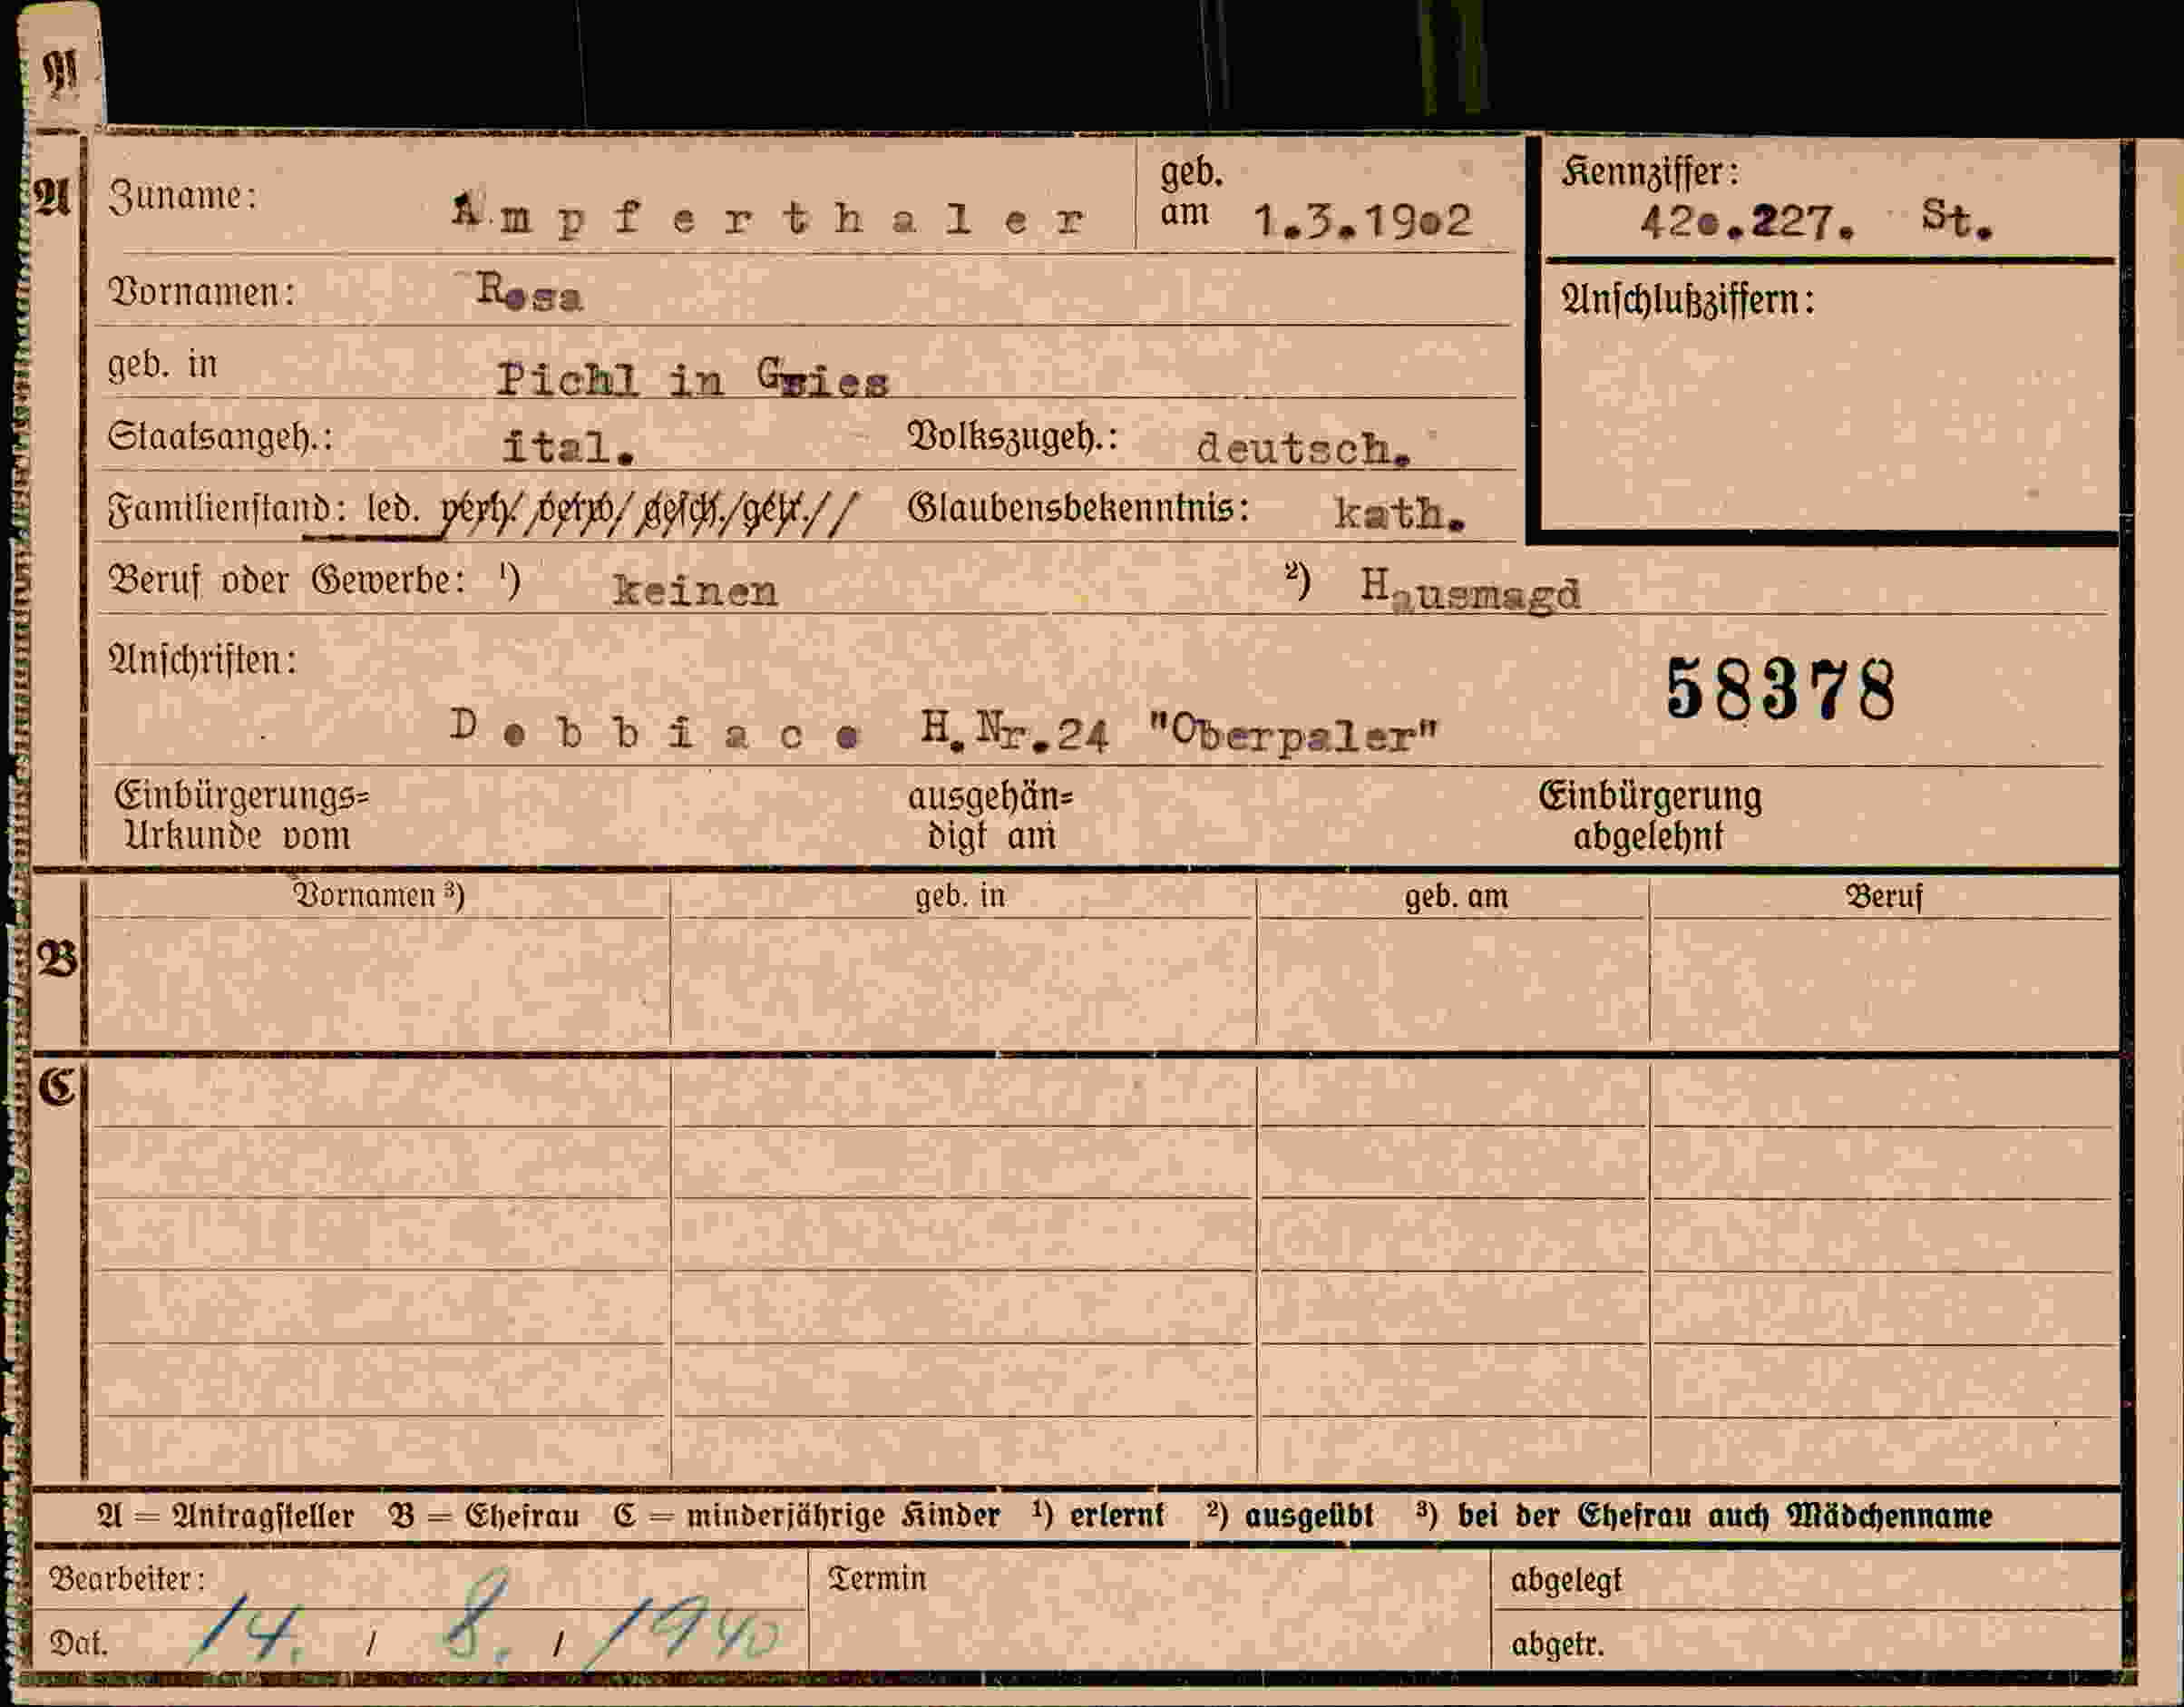 A
A
Zuname: Ampferthaler
geb. am 1.3.1902
Kennziffer:
420.227. St.
Vornamen: Rosa
Anschlußziffern:
geb. in Pichl in Gries
Staatsangeh.: ital. Volkszugeh.: deutsch.
Familienstand: led. verh. verw. gesch. getr. Glaubensbekenntnis: kath.
Beruf oder Gewerbe: ¹) keinen ²) Hausmagd
Anschriften:
58378
Dobbiaco H.Nr.24 "Oberpaler"
Einbürgerungs= ausgehän= Einbürgerung
Urkunde vom digt am abgelehnt
Vornamen ³) geb. in geb. am Beruf
B
C
A = Antragsteller B = Ehefrau C = minderjährige Kinder ¹) erlernt ²) ausgeübt ³) bei der Ehefrau auch Mädchenname
Bearbeiter: Termin abgelegt
Dat. 14. / 8. / 1940 abgetr.